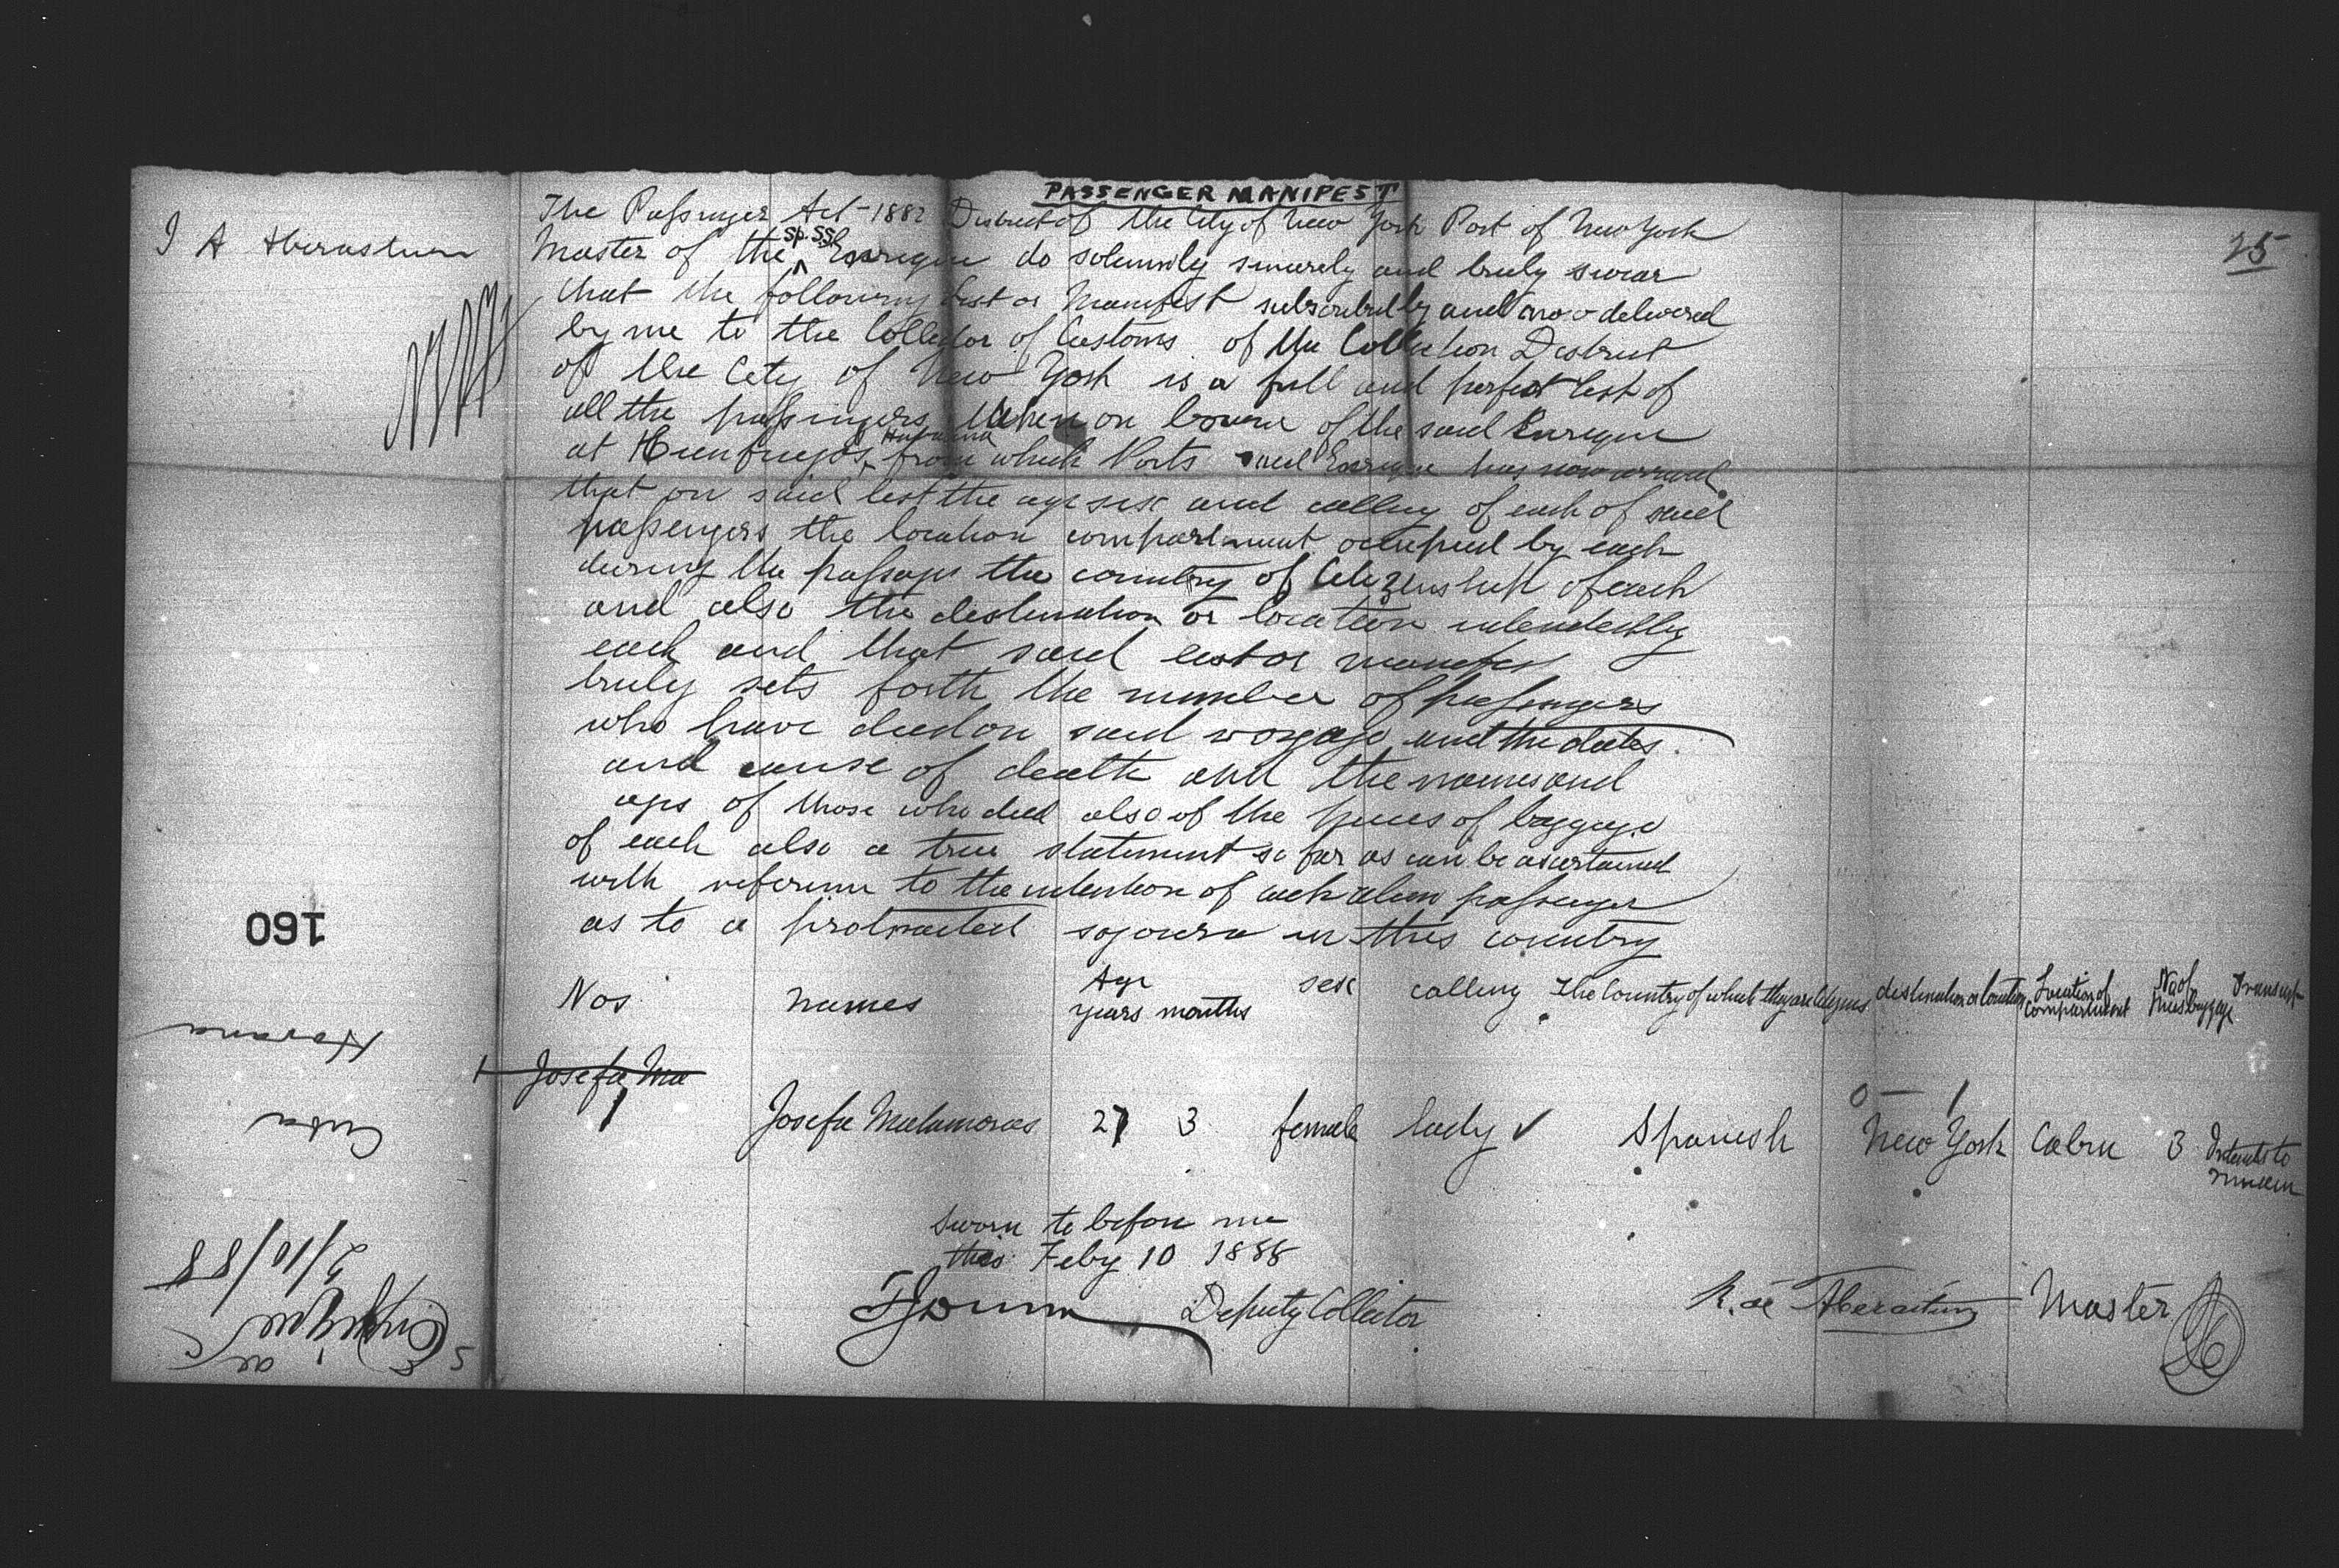 PASSENGER MANIFEST
25
The Passenger Act 1882 District of the City of New York Port of New York
I A Aberasturi Master of the Sp. SS. Enrique do solemnly sincerely and truly swear
that the following list or Manifest subscribed by and now delivered
by me to the Collector of Customs of the Collection District
of the City of New York is a full and perfect list of
all the passengers taken on board of the said Enrique
at Cienfuegos, Havana from which Ports said Enrique has now arrived
that on said list the age sex and calling of each of said
passengers the location compartment occupied by each
during the passage the country of Citizenship of each
and also the destination or location intended by
each and that said list or manifest
truly sets forth the number of passengers
who have died on said voyage and the dates
and cause of death and the names and
ages of those who died also of the pieces of baggage
of each also a true statement so far as can be ascertained
with reference to the intention of each alien passenger
as to a protracted sojourn in this country
Nos names Age years months sex calling The Country of which they are Citizens destination or location Location of compartment No of pieces baggage Transient
1 Josefa Ma
0 — 1
1 Josefa Matamoros 27 3 female lady ✓ Spanish New York Cabin 3 Intends to remain
Sworn to before me
this Feby 10 1888
Deputy Collector
Aberasturi Master
160
Havana
Cuba
2/10/88
Enrique
SS